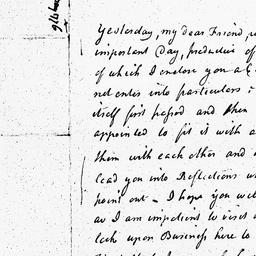 Yesterday, my dear Friend
important Day, productive of
of which I enclose you a
not enter into particulars
itself first passed and then
appointed to fit it with a
them with each other and
lead you into Reflections
point out - I hope you
as I am impatient to
look upon Business here to